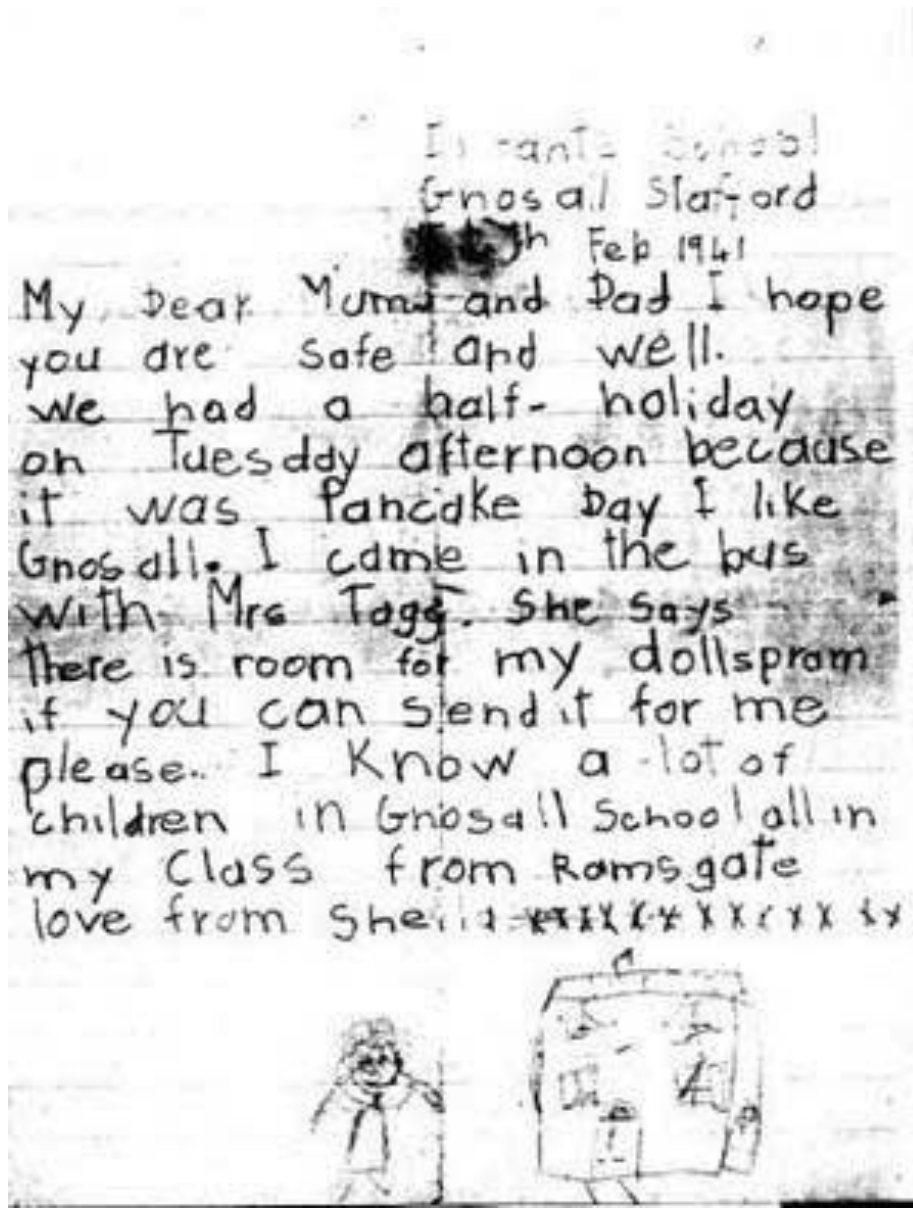 Infants School
Gnosall Stafford
Feb 1941
My Dear Mum and Dad I hope
you are safe and well.
we had a half- holiday
on Tuesday afternoon because
it was Pancake Day I like
Gnosall. I came in the bus
with Mrs Tagg. She says
there is room for my dollspram
if you can send it for me
please. I Know a lot of
children in Gnosall School all in
my Class from Ramsgate
love from Sheila xxxxxxxxxxxxx